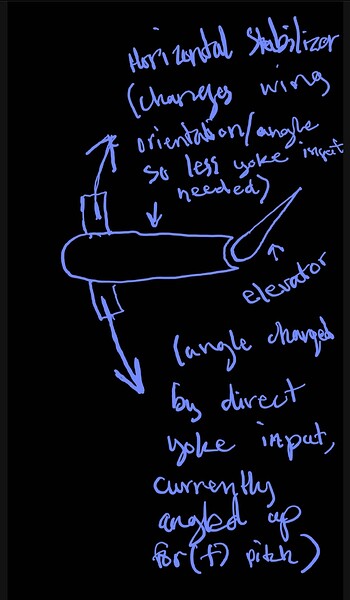 Horizontal Stabilizer
(changes wing
orientation/angle
so less yoke input
needed)
elevator
(angle changed
by direct
yoke input,
currently
angled up
for (+) pitch)